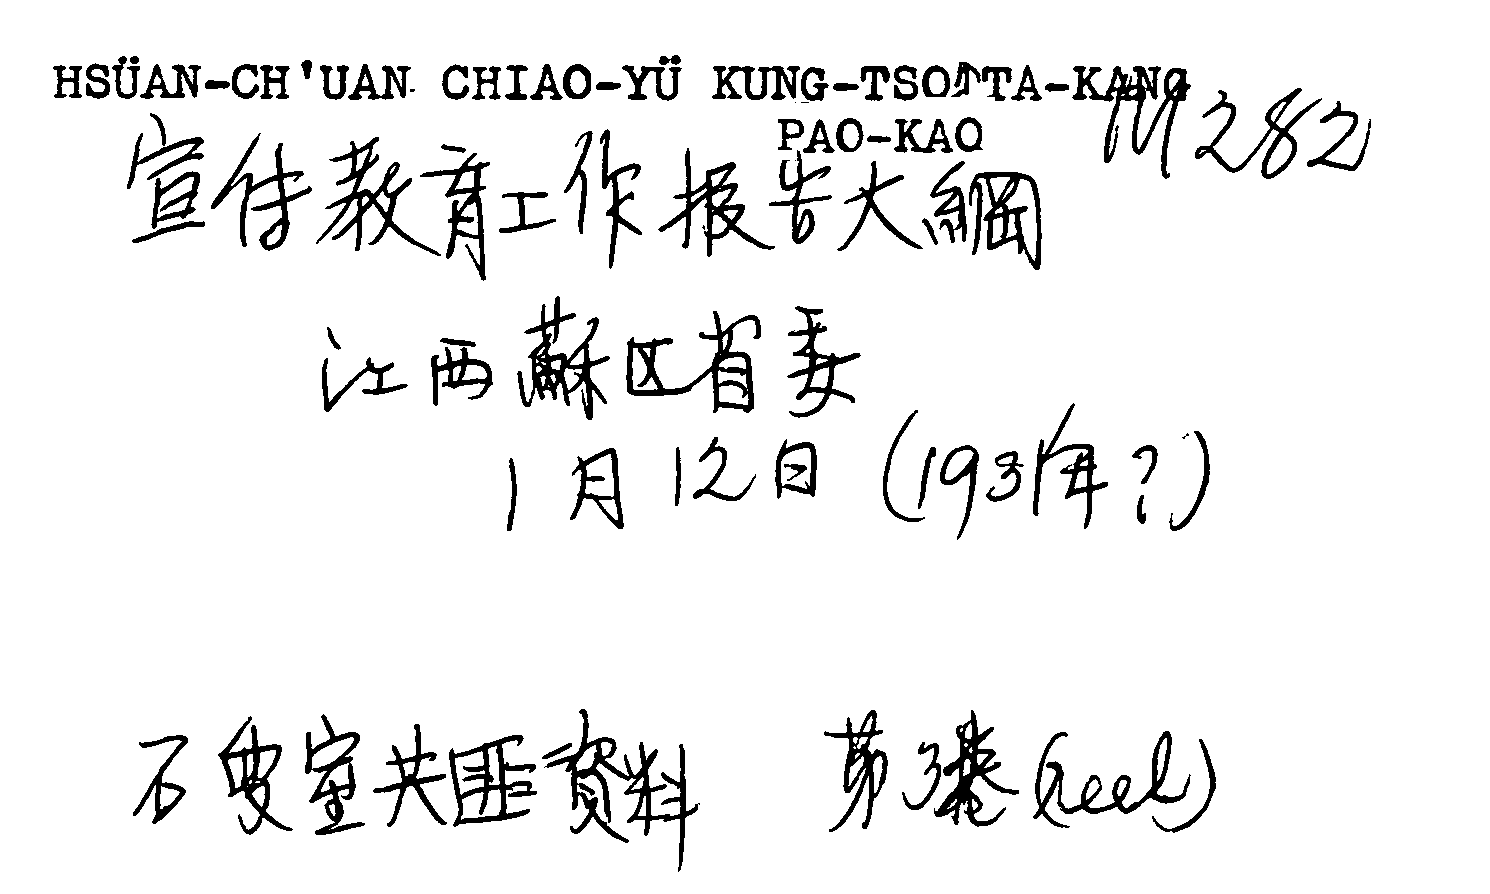 HSÜAN-CH'UAN CHIAO-YÜ KUNG-TSO TA-KANG
PAO-KAO
M282
宣传教育工作报告大綱
江西蘇区省委
1月12日 (1931年?)
石叟室共匪資料 第3卷 (reel)